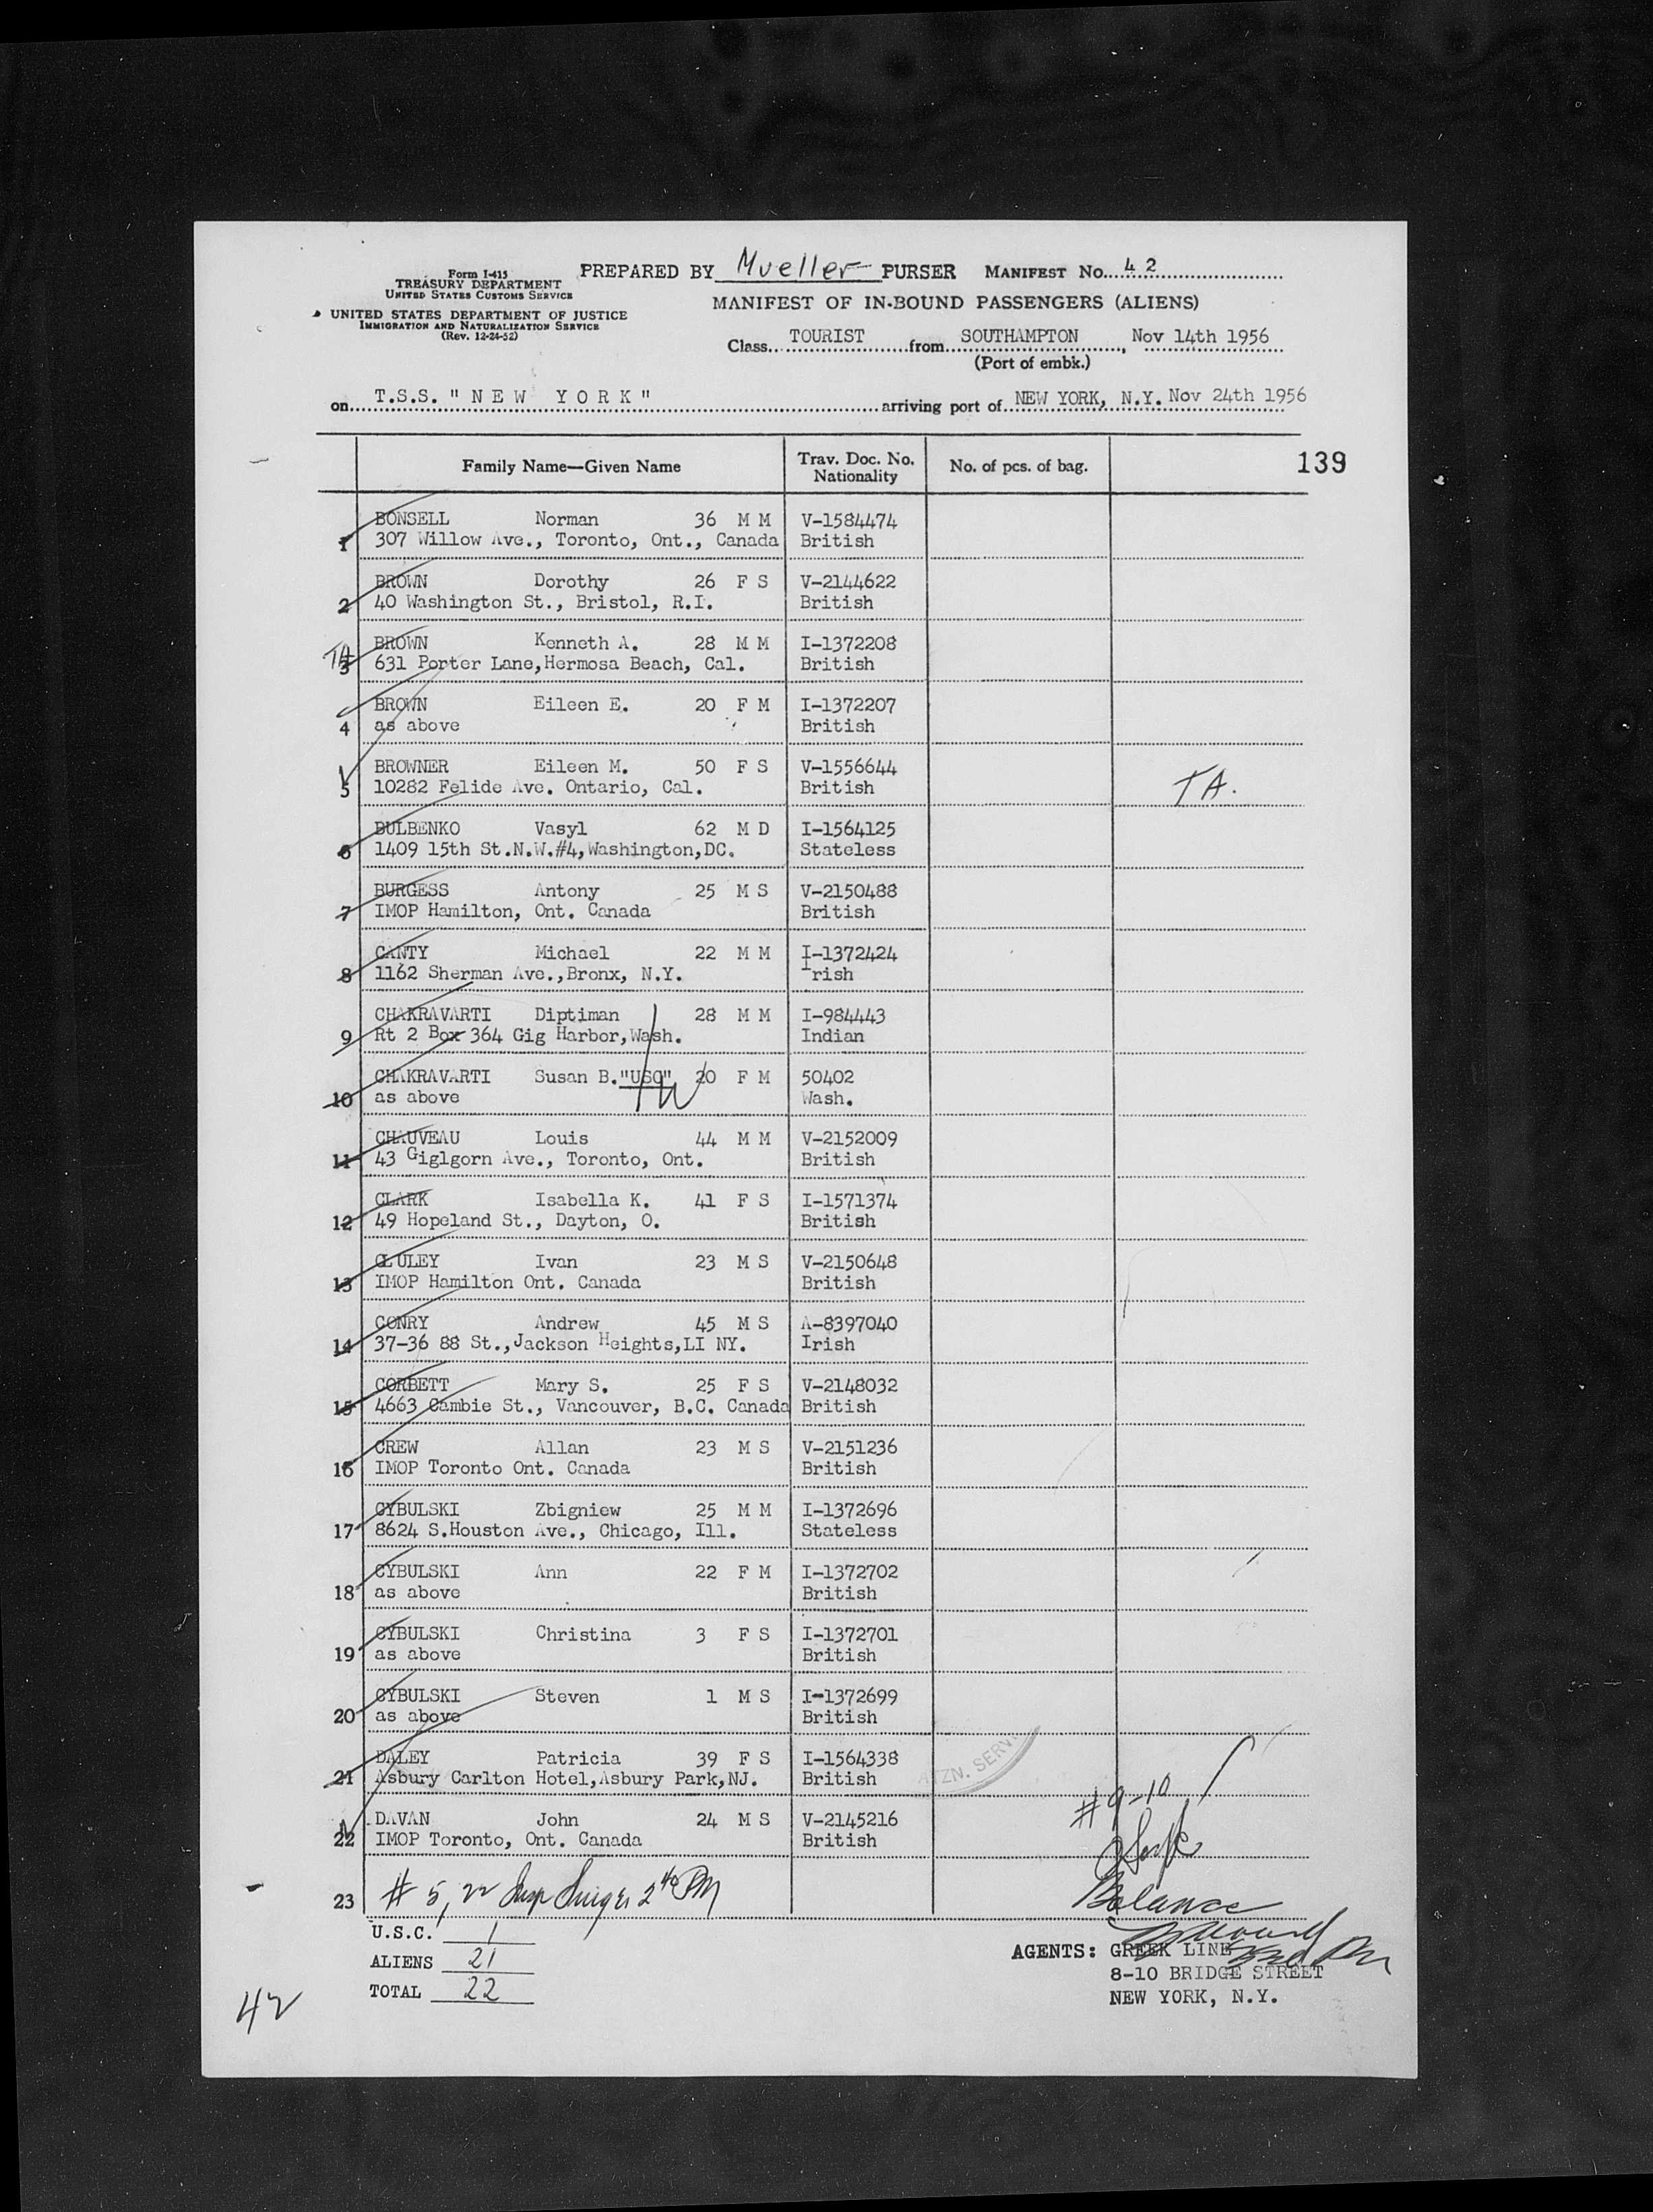 Form I-415
TREASURY DEPARTMENT
UNITED STATES CUSTOMS SERVICE
UNITED STATES DEPARTMENT OF JUSTICE
IMMIGRATION AND NATURALIZATION SERVICE
(Rev. 12-24-52)
PREPARED BY Mueller PURSER MANIFEST No. 42
MANIFEST OF IN-BOUND PASSENGERS (ALIENS)
Class TOURIST from SOUTHAMPTON, Nov 14th 1956
(Port of embk.)
on T.S.S. "NEW YORK" arriving port of NEW YORK, N.Y. Nov 24th 1956
Family Name—Given Name Trav. Doc. No. Nationality No. of pcs. of bag. 139
1 BONSELL Norman 36 M M V-1584474
307 Willow Ave., Toronto, Ont., Canada British
2 BROWN Dorothy 26 F S V-2144622
40 Washington St., Bristol, R.I. British
TA 3 BROWN Kenneth A. 28 M M I-1372208
631 Porter Lane,Hermosa Beach, Cal. British
4 BROWN Eileen E. 20 F M I-1372207
as above British
5 BROWNER Eileen M. 50 F S V-1556644
10282 Felide Ave. Ontario, Cal. British TA.
6 BULBENKO Vasyl 62 M D I-1564125
1409 15th St.N.W.#4,Washington,DC. Stateless
7 BURGESS Antony 25 M S V-2150488
IMOP Hamilton, Ont. Canada British
8 CANTY Michael 22 M M I-1372424
1162 Sherman Ave.,Bronx, N.Y. Irish
9 CHAKRAVARTI Diptiman 28 M M I-984443
Rt 2 Box 364 Gig Harbor,Wash. Indian
10 CHAKRAVARTI Susan B."USC" 20 F M 50402
as above Wash.
11 CHAUVEAU Louis 44 M M V-2152009
43 Giglgorn Ave., Toronto, Ont. British
12 CLARK Isabella K. 41 F S I-1571374
49 Hopeland St., Dayton, O. British
13 CLULEY Ivan 23 M S V-2150648
IMOP Hamilton Ont. Canada British
14 CONRY Andrew 45 M S A-8397040
37-36 88 St.,Jackson Heights,LI NY. Irish
15 CORBETT Mary S. 25 F S V-2148032
4663 Cambie St., Vancouver, B.C. Canada British
16 CREW Allan 23 M S V-2151236
IMOP Toronto Ont. Canada British
17 CYBULSKI Zbigniew 25 M M I-1372696
8624 S.Houston Ave., Chicago, Ill. Stateless
18 CYBULSKI Ann 22 F M I-1372702
as above British
19 CYBULSKI Christina 3 F S I-1372701
as above British
20 CYBULSKI Steven 1 M S I-1372699
as above British
21 DALEY Patricia 39 F S I-1564338
Asbury Carlton Hotel,Asbury Park,NJ. British
22 DAVAN John 24 M S V-2145216
IMOP Toronto, Ont. Canada British
#9-10
23 # 5, 22 PM
Balance
U.S.C. 1
ALIENS 21
TOTAL 22
AGENTS: GREEK LINE
8-10 BRIDGE STREET
NEW YORK, N.Y.
42